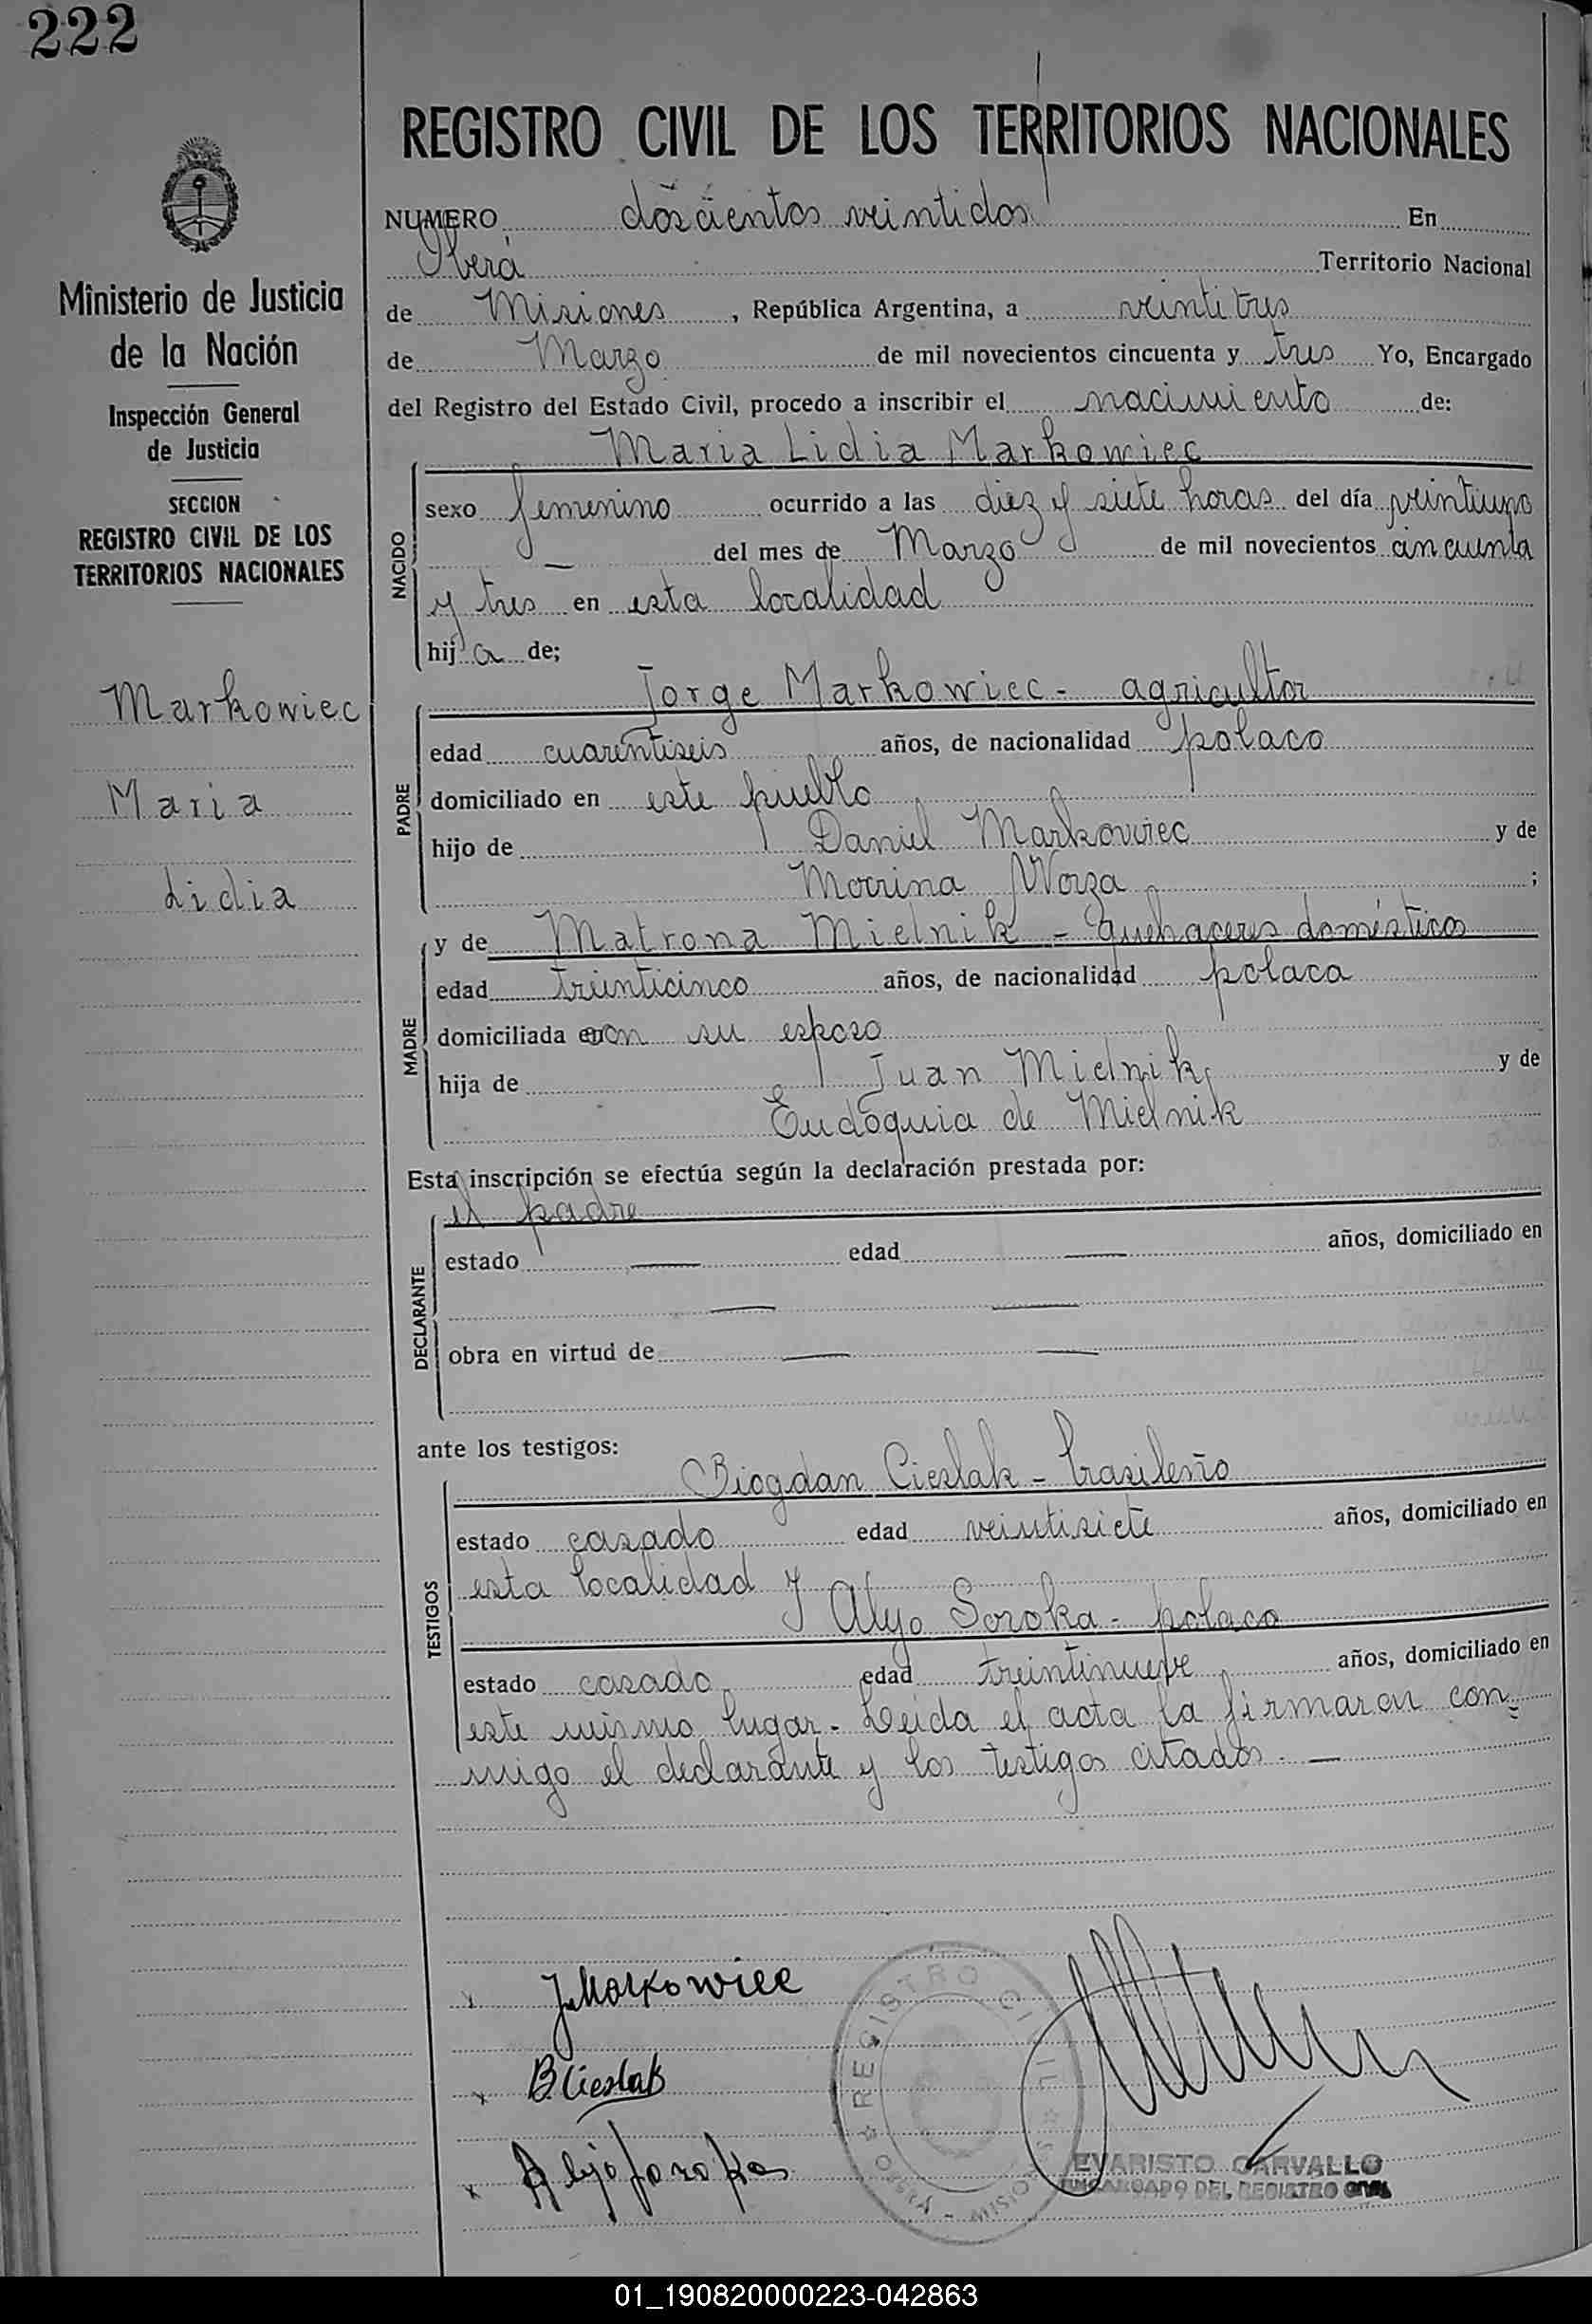 222
REGISTRO CIVIL DE LOS TERRITORIOS NACIONALES
NUMERO doscientos veintidos En
Oberá Territorio Nacional
de Misiones, República Argentina, a veintitres
de Marzo de mil novecientos cincuenta y tres Yo, Encargado
del Registro del Estado Civil, procedo a inscribir el nacimiento de:
Maria Lidia Markowiec
NACIDO
sexo femenino ocurrido a las diez y siete horas del día veintiuno
— del mes de Marzo de mil novecientos cincuenta
y tres en esta localidad
hija de;
PADRE
Jorge Markowiec - agricultor
edad cuarentiseis años, de nacionalidad polaco
domiciliado en este pueblo
hijo de Daniel Markowiec y de
Marina Worza ;
MADRE
y de Matrona Mielnik - quehaceres domésticos
edad treinticinco años, de nacionalidad polaca
domiciliada con su esposo
hija de Juan Mielnik y de
Eudoquia de Mielnik
Esta inscripción se efectúa según la declaración prestada por:
DECLARANTE
el padre
estado — edad — años, domiciliado en
— —
obra en virtud de — —
ante los testigos:
TESTIGOS
Biogdan Cieslak - brasileño
estado casado edad veintisiete años, domiciliado en
esta localidad y
Alejo Soroka - polaco
estado casado edad treintinueve años, domiciliado en
este mismo lugar. Leida el acta la firmaron con=
migo el declarante y los testigos citados. —
Ministerio de Justicia
de la Nación
Inspección General
de Justicia
SECCION
REGISTRO CIVIL DE LOS
TERRITORIOS NACIONALES
Markowiec
Maria
Lidia
x J. Markowiec
x B. Cieslak
x Alejo Soroka
REGISTRO CIVIL
OBERÁ - MISIONES
EVARISTO CARVALLO
ENCARGADO DEL REGISTRO CIVIL
01_190820000223-042863